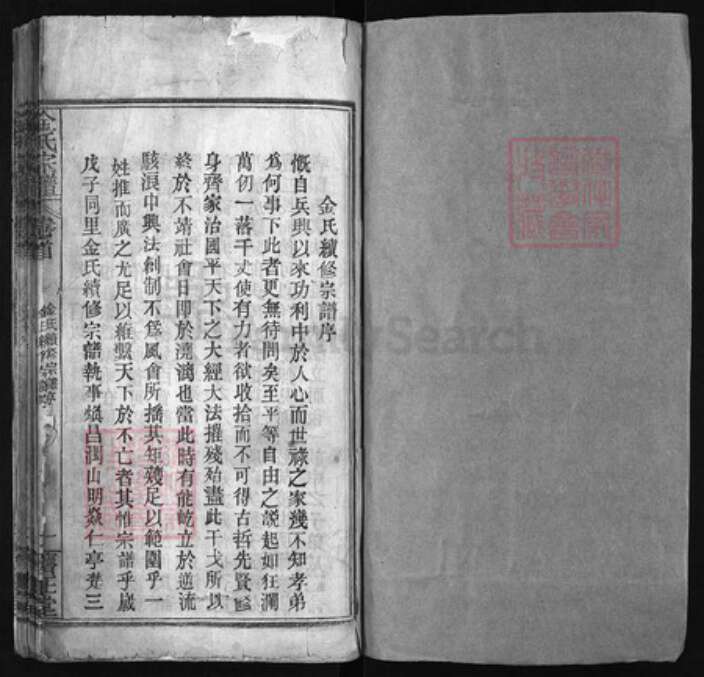 金氏續修宗譜序
慨自兵興以來功利中於人心而世祿之家幾不知孝弟
爲何事下此者更無待問矣至平等自由之說起如狂瀾
萬仞一落千丈使有力者欲收拾而不可得古哲先賢修
身齊家治國平天下之大經大法摧殘殆盡此干戈所以
終於不靖社會日即於澆漓也當此時有能屹立於逆流
駭浪中興法創制不爲風會所播其矩矱足以範圍乎一
姓推而廣之尤足以維繫天下於不亡者其惟宗譜乎歲
戊子同里金氏續修宗譜執事 昌潤山明焱仁亭楚三
金氏宗譜
卷首
金氏續修宗譜序
一